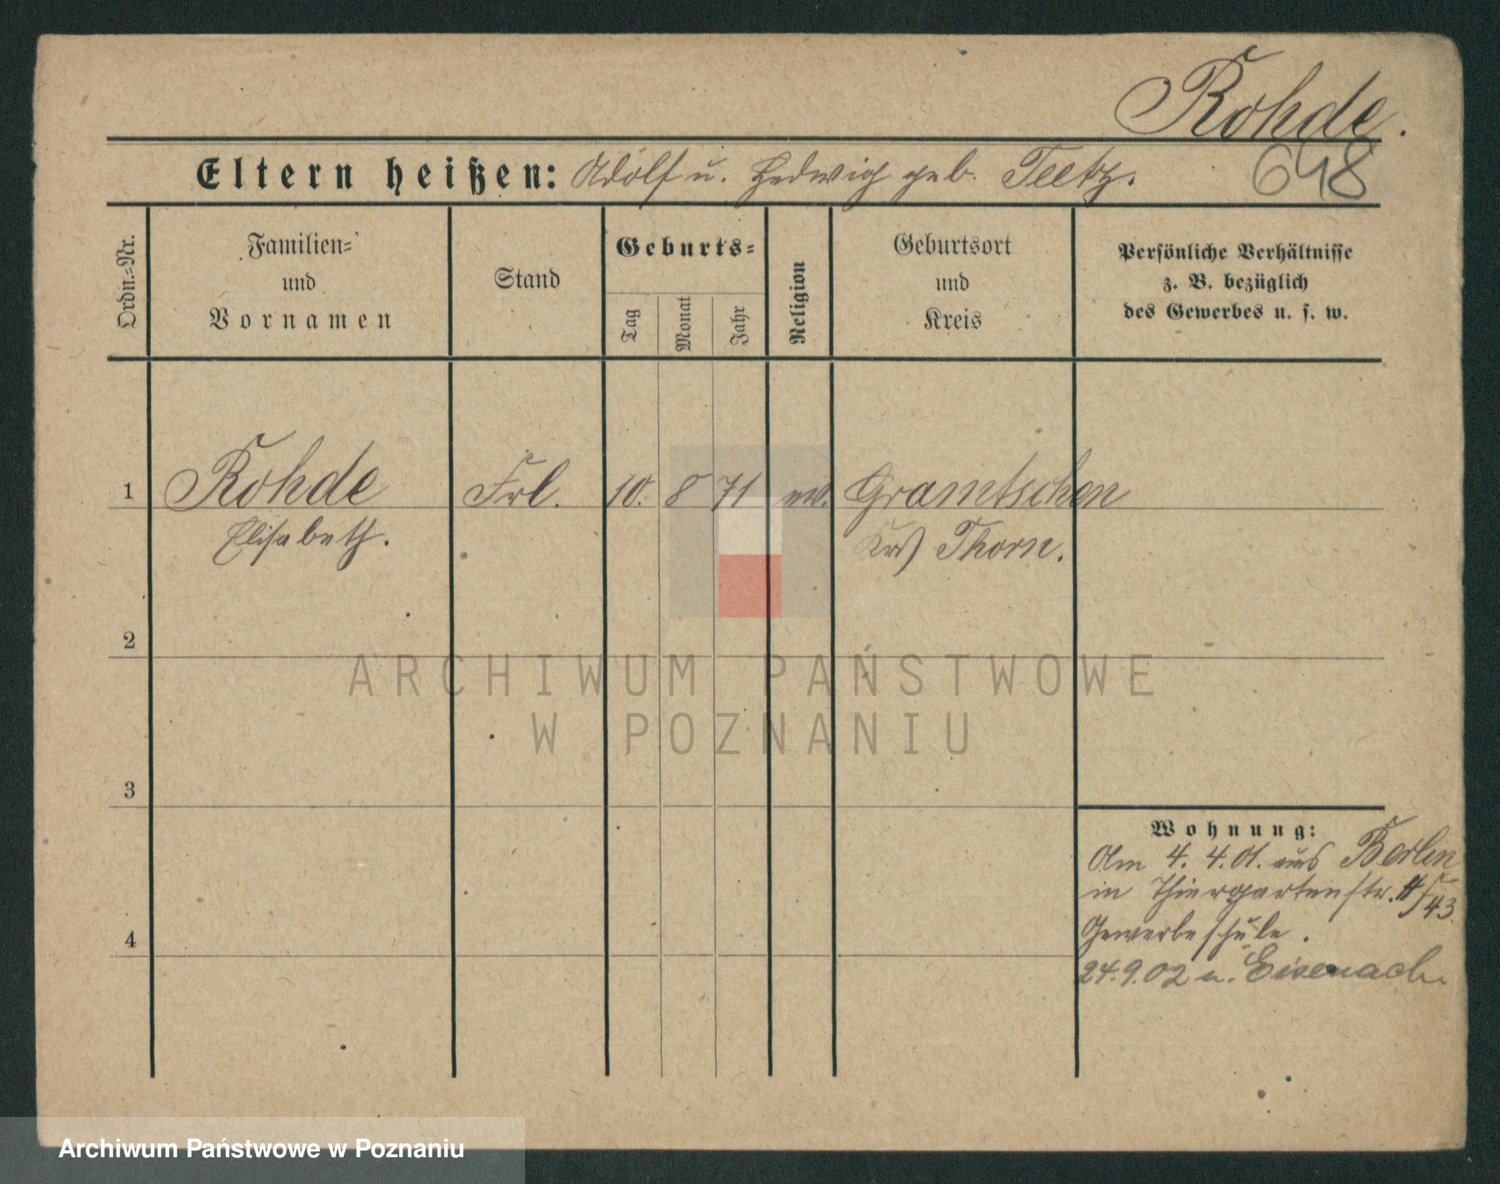 Rohde.
648
Eltern heißen: Adolf u. Hedwig geb. Teetz.
Ordn.-Nr.
Familien-
und
Vornamen
Stand
Geburts-
Tag
Monat
Jahr
Religion
Geburtsort
und
Kreis
Persönliche Verhältnisse
z. B. bezüglich
des Gewerbes u. s. w.
1 Rohde Frl. 10. 8 71 ev. Gramtschen
Elisabeth. Krs Thorn.
2
ARCHIWUM PAŃSTWOWE
W POZNANIU
3
Wohnung:
Am 4. 4. 01. aus Berlin
in Thiergartenstr.
43.
Gewerbeschule.
4
24.9.02 n. Eisenach.
Archiwum Państwowe w Poznaniu